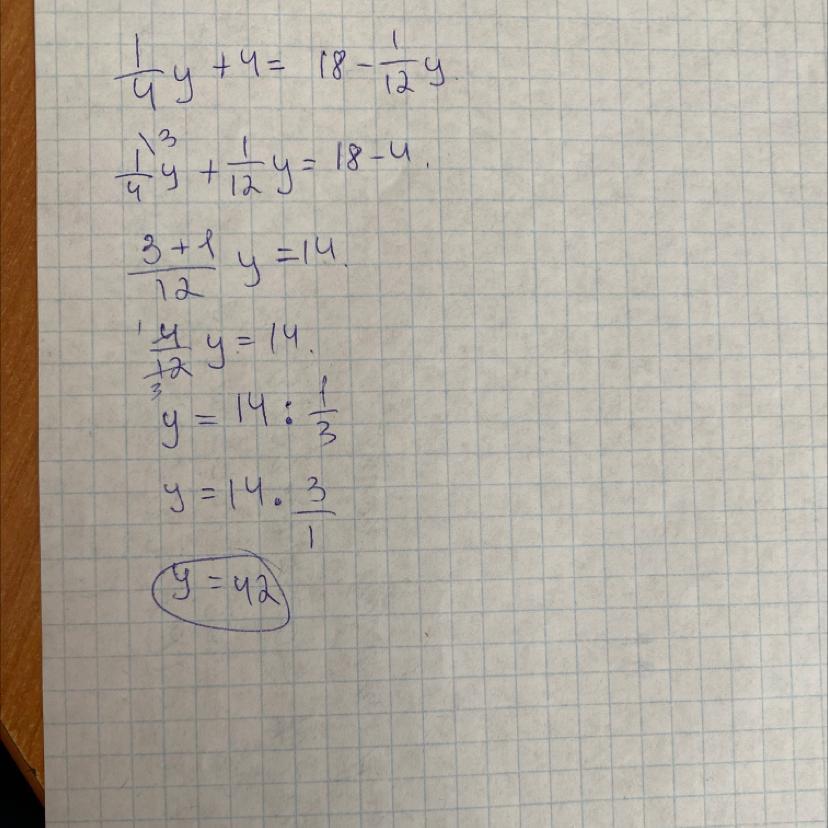 1/4 y + 4 = 18 - 1/12 y.
1/4 \3 y + 1/12 y = 18 - 4.
3 + 1/12 y = 14.
1 4/12 3 y = 14.
y = 14 : 1/3
y = 14 · 3/1
y = 42